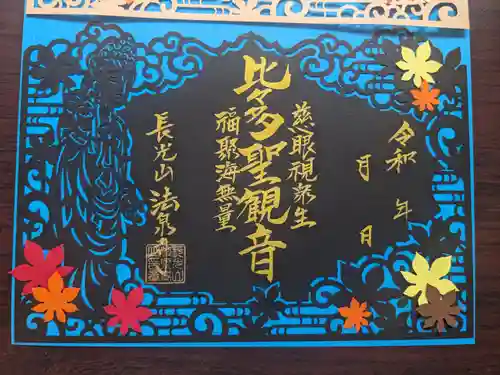 令和 年
月 日
慈眼視衆生
比々多聖観音
福聚海無量
長光山 法泉寺